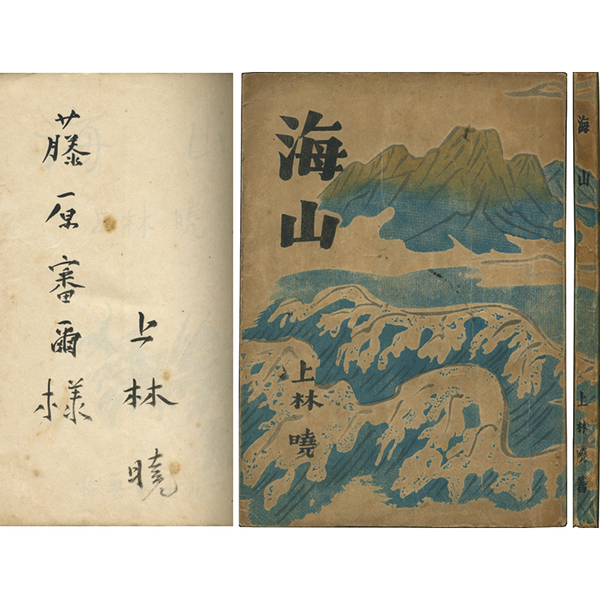 藤原審爾様
上林暁
海山
上林曉
海山
上林曉著